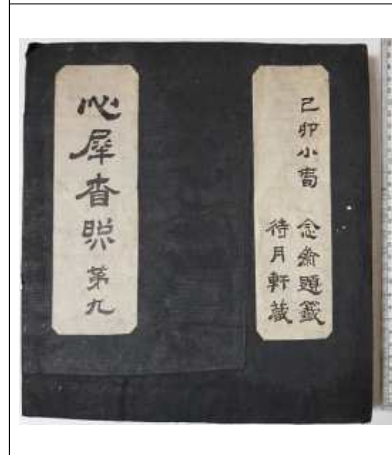 己卯小春
念齋題籤
待月軒藏
心犀香照 第九